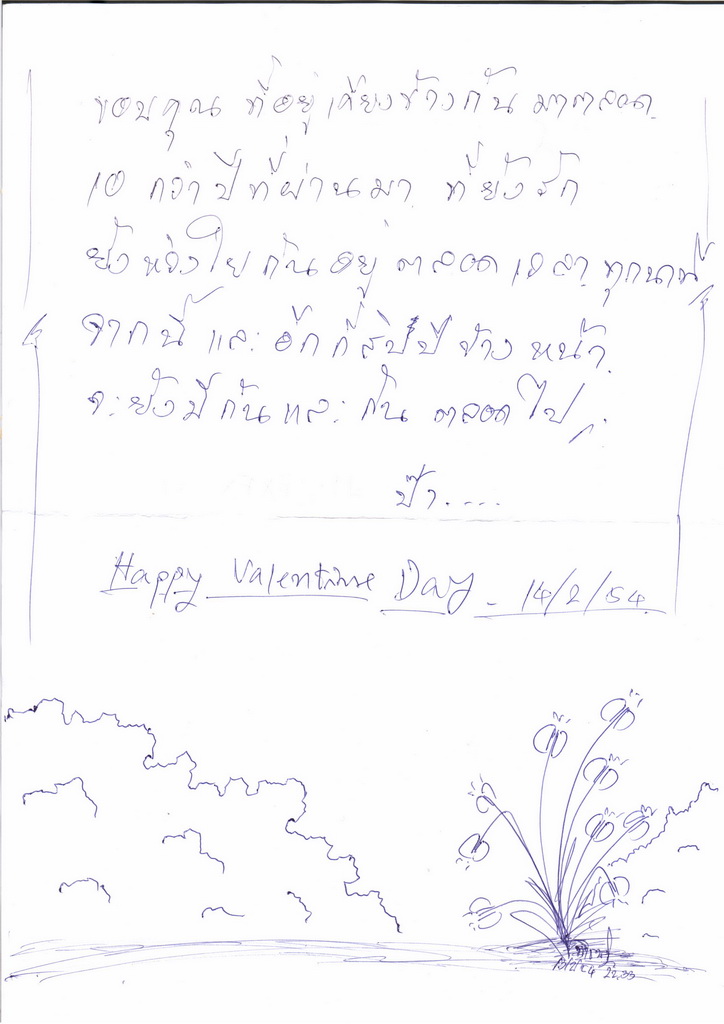 ขอบคุณ ที่อยู่เคียงข้างกัน มาตลอด
10 กว่าปีที่ผ่านมา ที่ยังรัก
ยังห่วงใยกันอยู่ ตลอดเวลา ทุกนาที
จากนี้ และ อีกกี่สิบปี ข้างหน้า
จะยังมีกันและกัน ตลอดไป
ป๊า....
Happy Valentine Day - 14/2/54
13/2/54 22.33